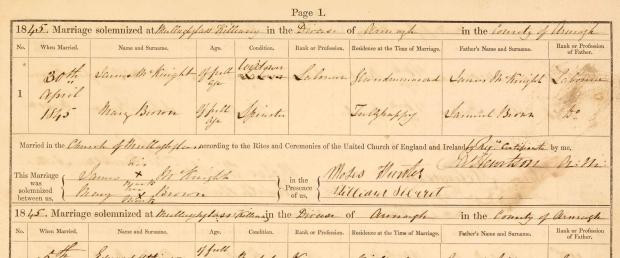 Page 1.
1845. Marriage solemnized at Mullaghglass Killeavy in the Diocese of Armagh in the County of Armagh
No. When Married. Name and Surname. Age. Condition. Rank or Profession. Residence at the Time of Marriage. Father's Name and Surname. Rank or Profession of Father.
1 30th April 1845 James McKnight Of full age Widower Labourer James McKnight Labourer
Mary Brown Of full age Spinster Tullyhappy Samuel Brown Do
Married in the Church of Mullaghglass according to the Rites and Ceremonies of the United Church of England and Ireland by Regrs Certificate by me,
This Marriage was solemnized between us, James his X mark McKnight
Mary her X mark Brown
in the Presence of us, Moses Hunter
William
1845. Marriage solemnized at Mullaghglass Killeavy in the Diocese of Armagh in the County of Armagh
No. When Married. Name and Surname. Age. Condition. Rank or Profession. Residence at the Time of Marriage. Father's Name and Surname. Rank or Profession of Father.
Of full